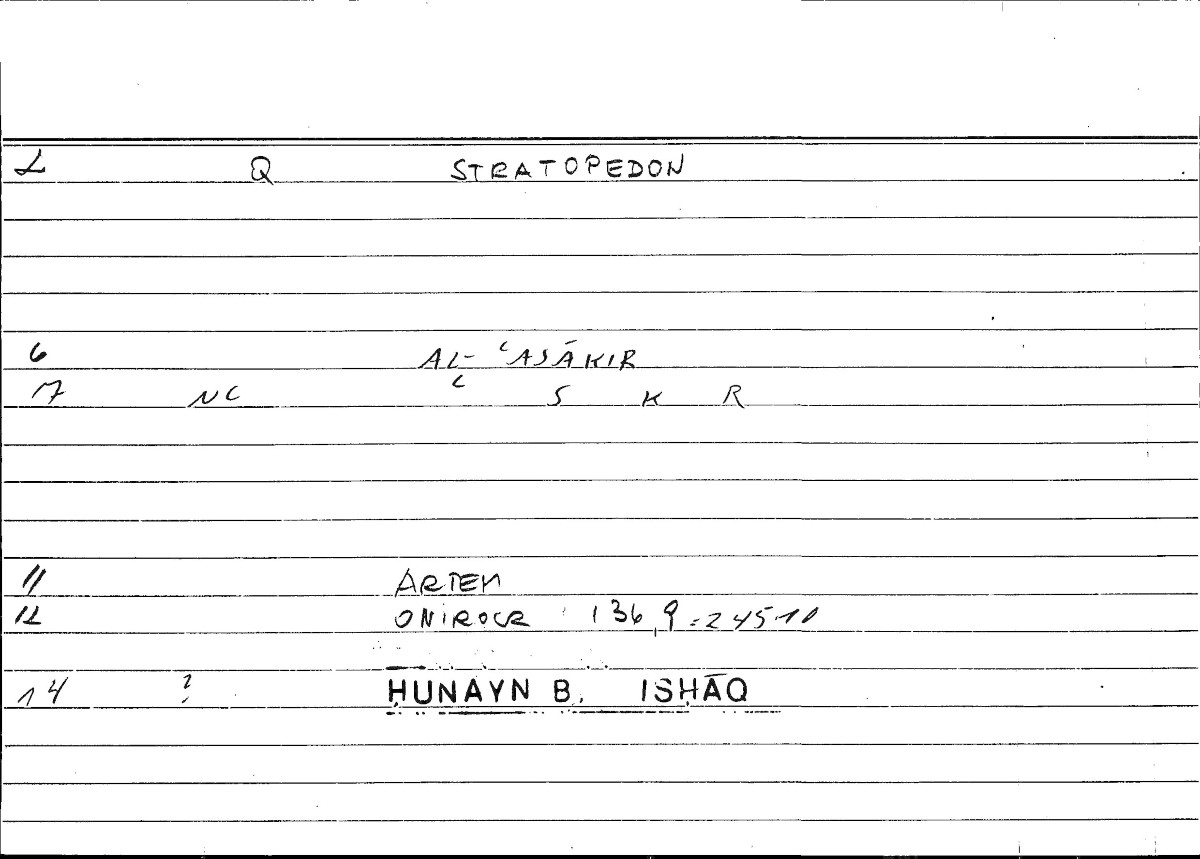 2 Q STRATOPEDON
6 AL- ʿASĀKIR
17 NC ʿ S K R
11 ARTEM
12 ONIROCR 136,9 = 245.10
14 ? ḤUNAYN B. ISḤĀQ